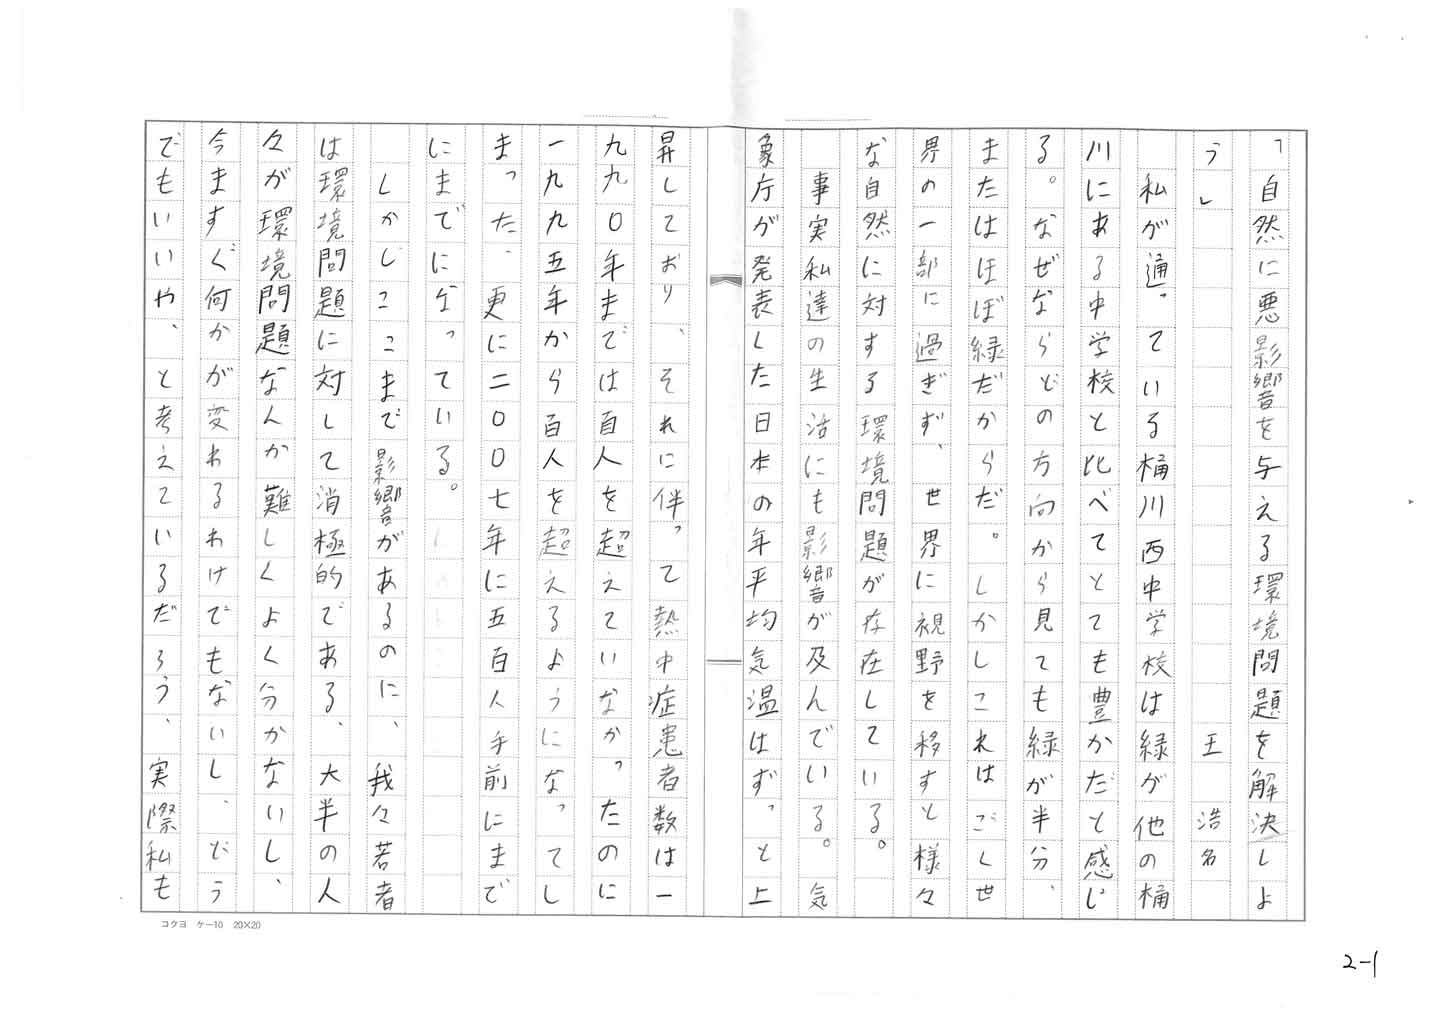 「自然に悪影響を与える環境問題を解決しよ
う」 王 浩名
私が通っている桶川西中学校は緑が他の桶
川にある中学校と比べてとても豊かだと感じ
る。なぜならどの方向から見ても緑が半分、
またはほぼ緑だからだ。しかしこれはごく世
界の一部に過ぎず、世界に視野を移すと様々
な自然に対する環境問題が存在している。
事実私達の生活にも影響が及んでいる。気
象庁が発表した日本の年平均気温はずっと上
昇しており、それに伴って熱中症患者数は一
九九〇年までは百人を超えていなかったのに
一九九五年から百人を超えるようになってし
まった、更に二〇〇七年に五百人手前にまで
にまでになっている。
しかしここまで影響があるのに、我々若者
は環境問題に対して消極的である、大半の人
々が環境問題なんか難しくよく分かないし、
今ますぐ何かが変わるわけでもないし、どう
でもいいや、と考えているだろう、実際私も
コクヨ ケー10 20×20
2-1